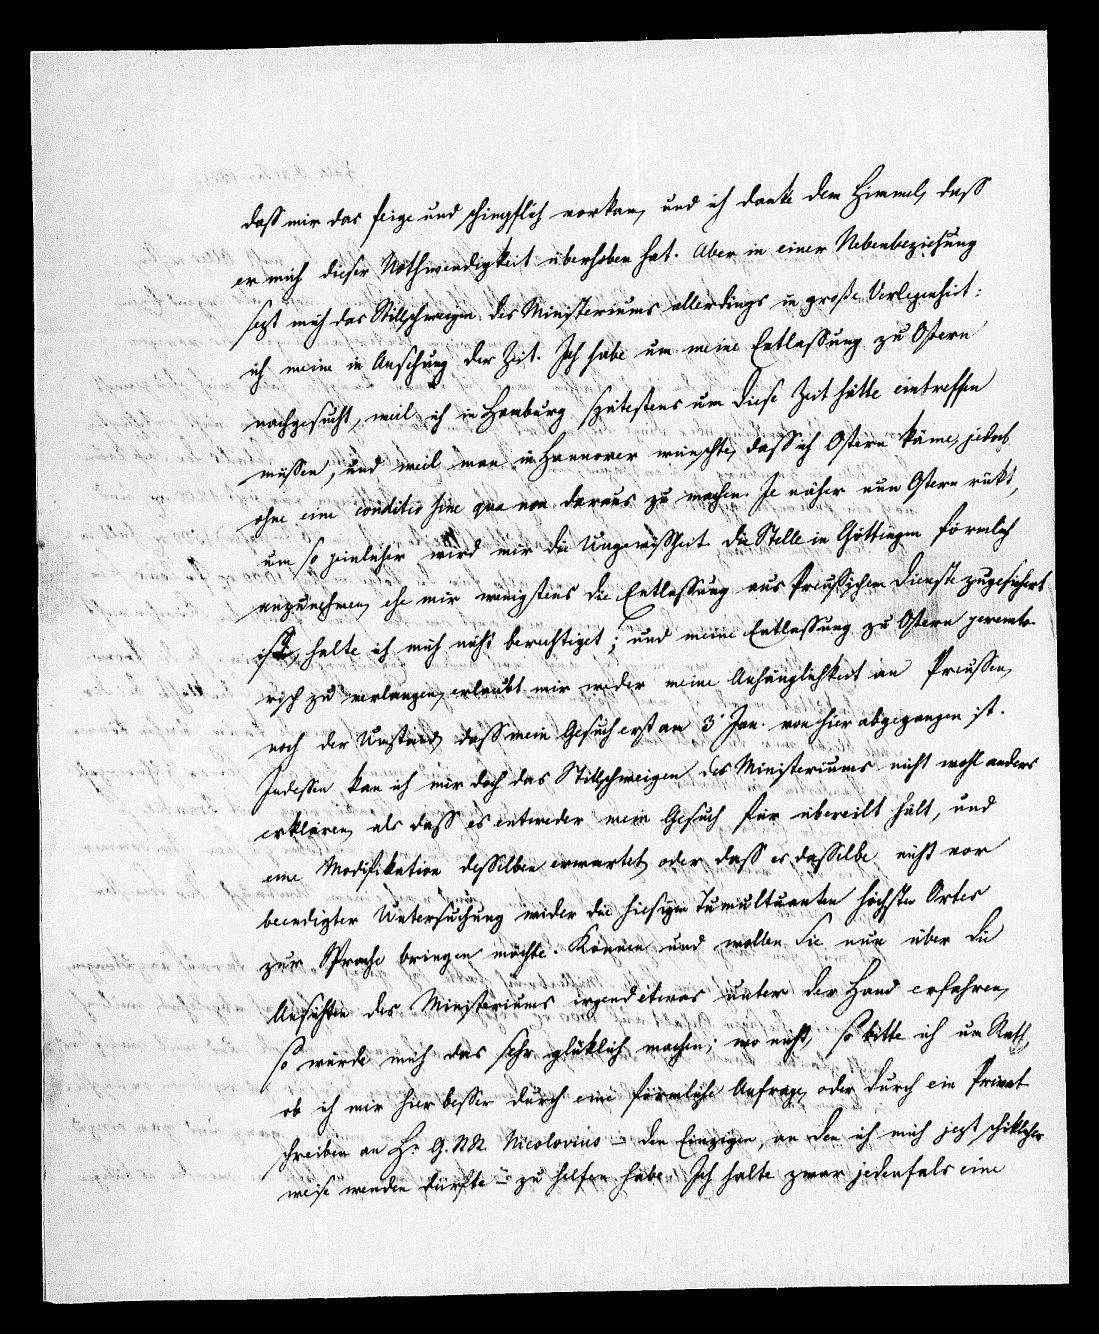 dass mir das feige und schimpflich vorkam, und ich danke dem Himmel, dass
er mich dieser Nothwendigkeit überhoben hat. Aber in einer Nebenbeziehung
sezt mich das Stillschweigen des Ministeriums allerdings in große Verlegenheit:
ich meine in Ansehung der Zeit. Ich habe um meine Entlassung zu Ostern
nachgesucht, weil ich in Hamburg spätestens um diese Zeit hätte eintreffen
müssen, und weil man in Hannover wünschte, dass ich Ostern käme, jedoch
ohne eine conditio sine qua non daraus zu machen. Je näher nun Ostern rükt,
um so peinlicher wird mir die Ungewißheit. Die Stelle in Göttingen förmlich
anzunehmen, ehe mir wenigstens die Entlassung aus Preußischem Dienste zugesichert
ist, halte ich mich nicht berechtiget; und meine Entlassung zu Ostern peremto-
risch zu verlangen, erlaubt mir weder meine Anhänglichkeit an Preussen,
noch der Umstand, dass mein Gesuch erst am 3 Jan. von hier abgegangen ist.
Indessen kan ich mir doch das Stillschweigen des Ministeriums nicht wohl anders
erklären, als dass es entweder mein Gesuch für übereilt hält, und
eine Modifikation desselben erwartet, oder dass es dasselbe nicht vor
beendigter Untersuchung wider die hiesigen Tumultuanten höchsten Ortes
zur Sprache bringen möchte. Können und wollen Sie nun über die
Ansichten des Ministeriums irgend etwas unter der Hand erfahren,
so würde mich das sehr glüklich machen; wo nicht, so bitte ich um Rath,
ob ich mir hier besser durch eine förmliche Anfrage, oder durch ein Privat
schreiben an H. G. Nicolovius – den Einzigen, an den ich mich jezt schiklicher
weise wenden dürfte – zu helfen habe. Ich halte zwar jedenfals eine